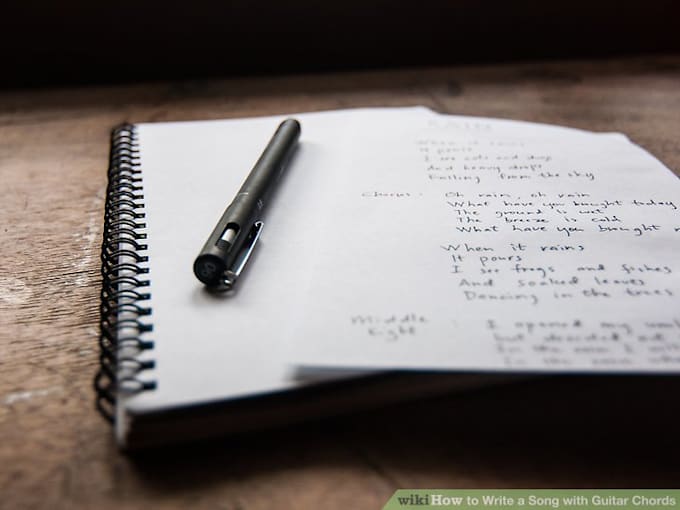 RAIN
When it rains
It pours
I see cats and dogs
And heavy drops
Falling from the sky
Chorus : Oh rain, oh rain
What have you bought today
The ground is wet
The breeze is cold
What have you bought
When it rains
It pours
I see frogs and fishes
And soaked leaves
Dancing in the trees
Middle Eight : I opened my
but decided
In the rain I
In the rain
wikiHow to Write a Song with Guitar Chords